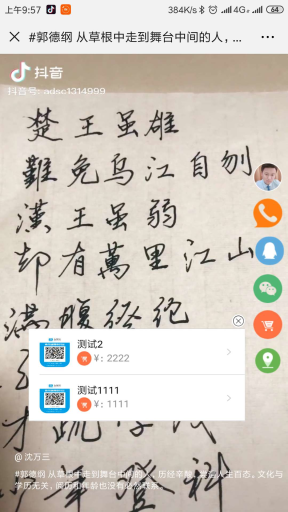 上午9:57
384K/s
4G
64
#郭德纲 从草根中走到舞台中间的人，...
抖音
抖音号: adsc1314999
楚王虽雄
難免乌江自刎
漢王虽弱
却有萬里江山
满腹经纶
测试2
¥: 2222
测试1111
¥: 1111
@ 沈万三
#郭德纲 从草根中走到舞台中间的人，历经辛酸，
学历无关，
登科